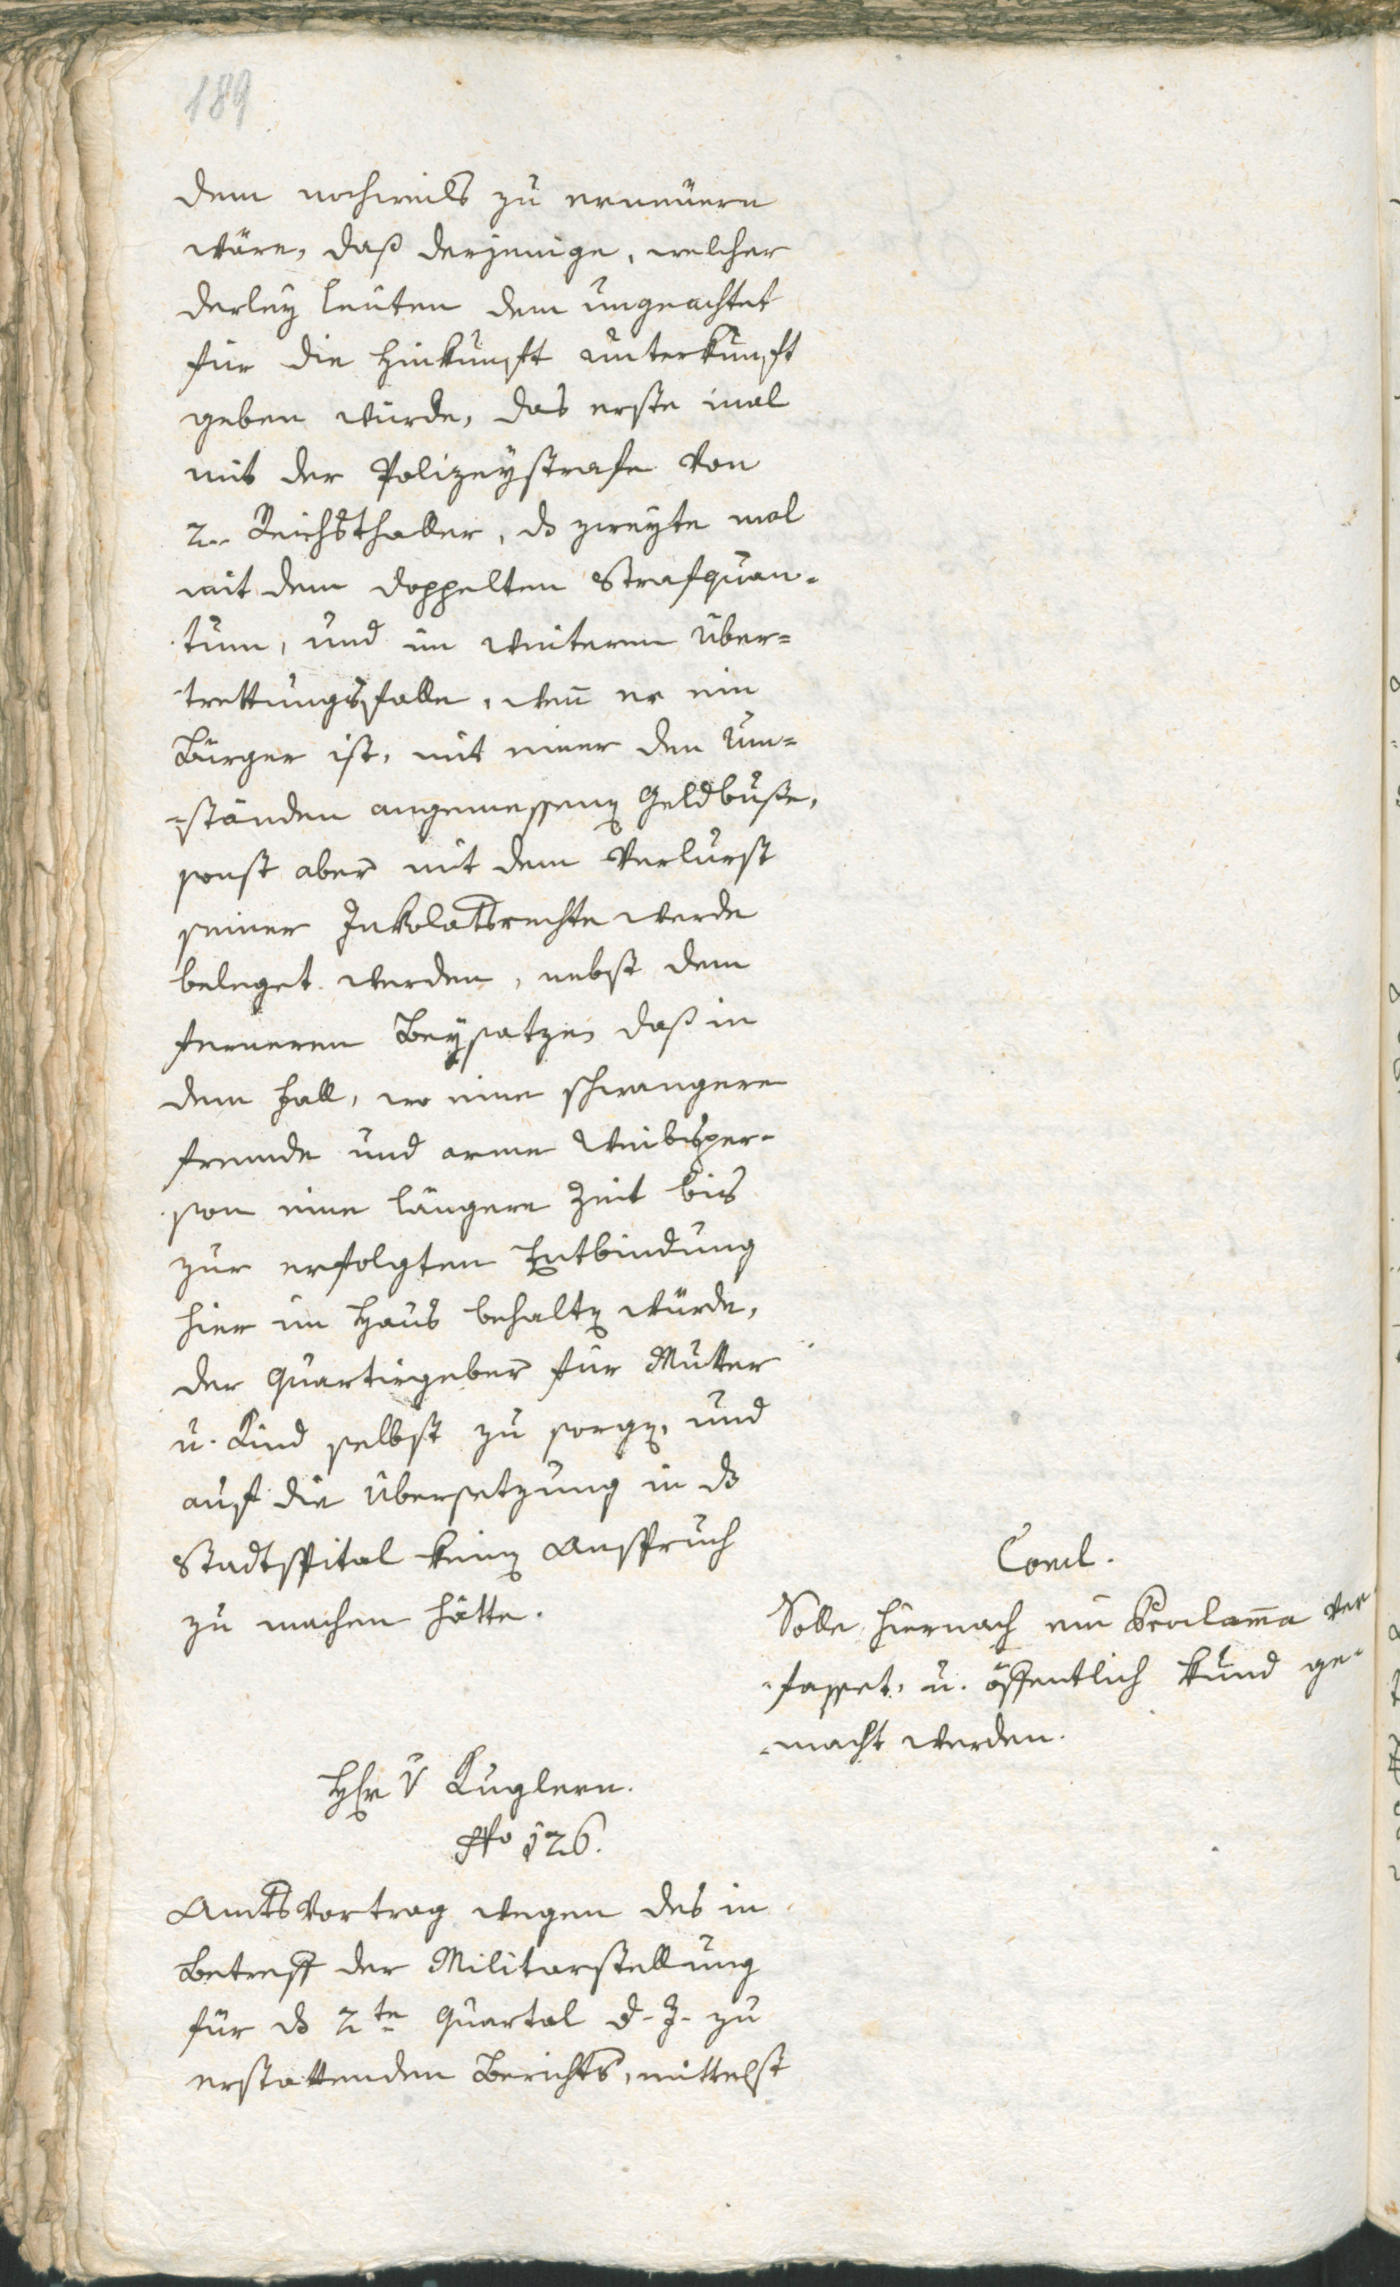 189
dem nochmals zu erneüern
wäre, daß derjenige, welcher
derley leüten dem ungeachtet
für die Hinkunft unterkunft
geben würde, das erste mal
mit der Polizeystrafe von
2.. Reichsthaller, ds zweyte mal
mit dem doppelten Strafquan-
tum, und im weiterm über=
trettungsfalle, wen̄ er ein
Bürger ist, mit einer den Um=
=ständen angemessenen Geldbuße,
sonst aber mit dem Verlurst
seiner Inkolatsrechte werde
beleget werden, nebst dem
ferneren Beysatze, daß in
dem Fall, wo eine schwangere
fremde und arme Weibsper-
son eine längere Zeit bis
zur erfolgten Entbindung
hier im Haus behalten würde,
der Quartirgeber für Mutter
u. Kind selbst zu sorgen, und
auf die Übersetzung in ds
Stadtspital keinen Anspruch
zu machen hätte.
Concl.
Solle hiernach ein Proclam̄a ver
-fasset, u. öffentlich kund ge-
-macht werden.
Hr v Kuglern.
No 126.
Amtsvortrag wegen des in
Betreff der Militarstellung
für ds 2te Quartal d. J. zu
erstattenden Berichts, mittelst